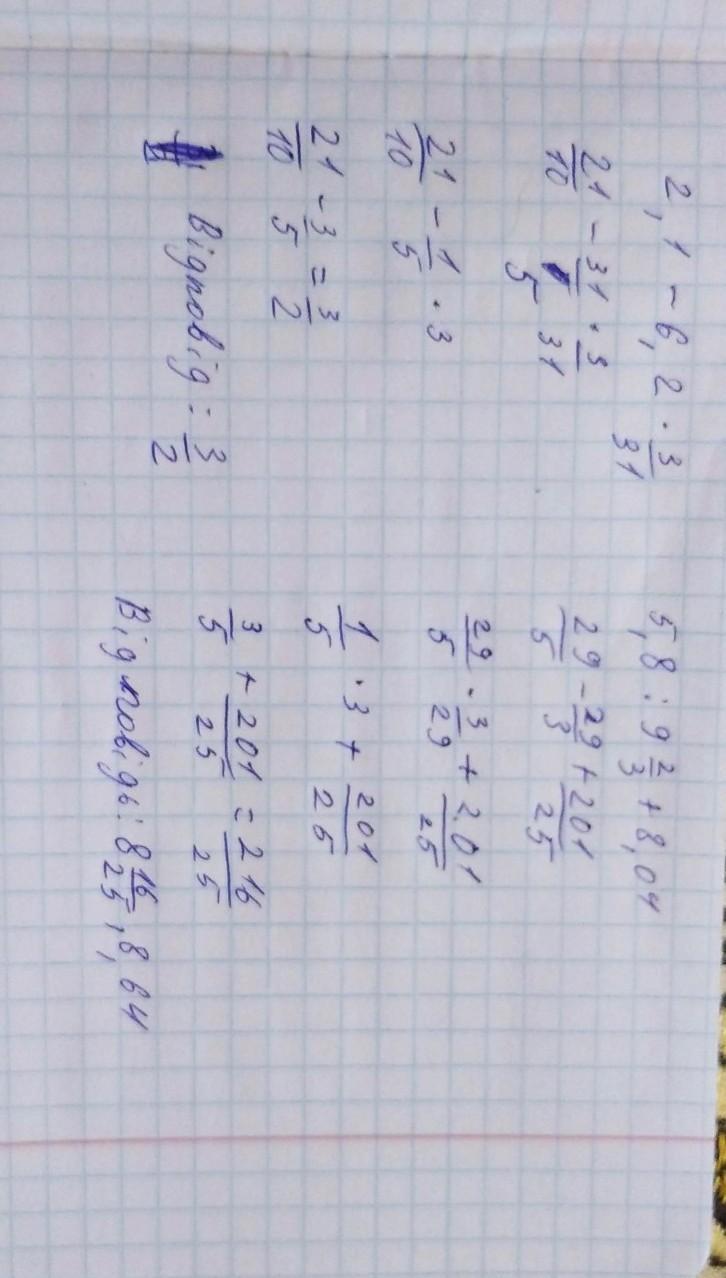 2,1 - 6,2 · 3/31
21/10 - 31/5 · 3/31
21/10 - 1/5 · 3
21/10 - 3/5 = 3/2
Відповід: 3/2
5,8 : 9 2/3 + 8,04
29/5 - 29/3 + 201/25
29/5 · 3/29 + 201/25
1/5 · 3 + 201/25
3/5 + 201/25 = 216/25
Відповідь: 8 16/25, 8,64